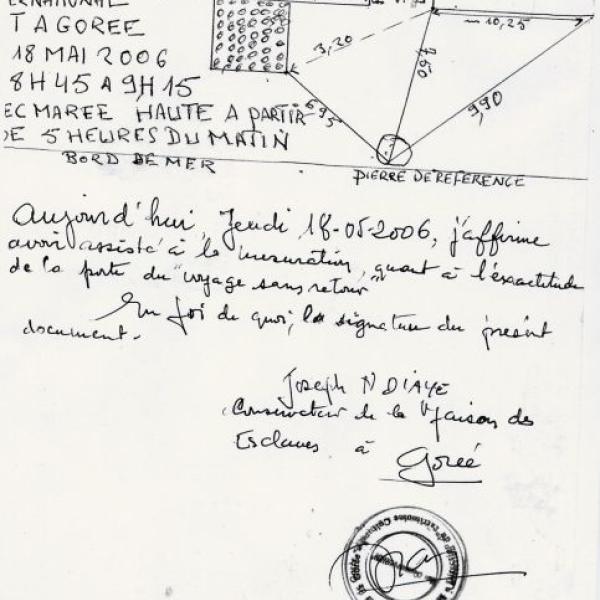 ERNATIONAL
T A GOREE
18 MAI 2006
8H45 A 9H15
EC MAREE HAUTE A PARTIR
DE 5 HEURES DU MATIN
BORD DE MER
10,25
3,20
7,60
6,95
9,90
PIERRE DE REFERENCE
Aujourd'hui, Jeudi 18-05-2006, j'affirme
avoir assisté à la mesuration, quant à l'exactitude
de la porte du "voyage sans retour"
En foi de quoi, la signature du présent
document.
Joseph NDIAYE
Conservateur de la Maison des
Esclaves à Gorée